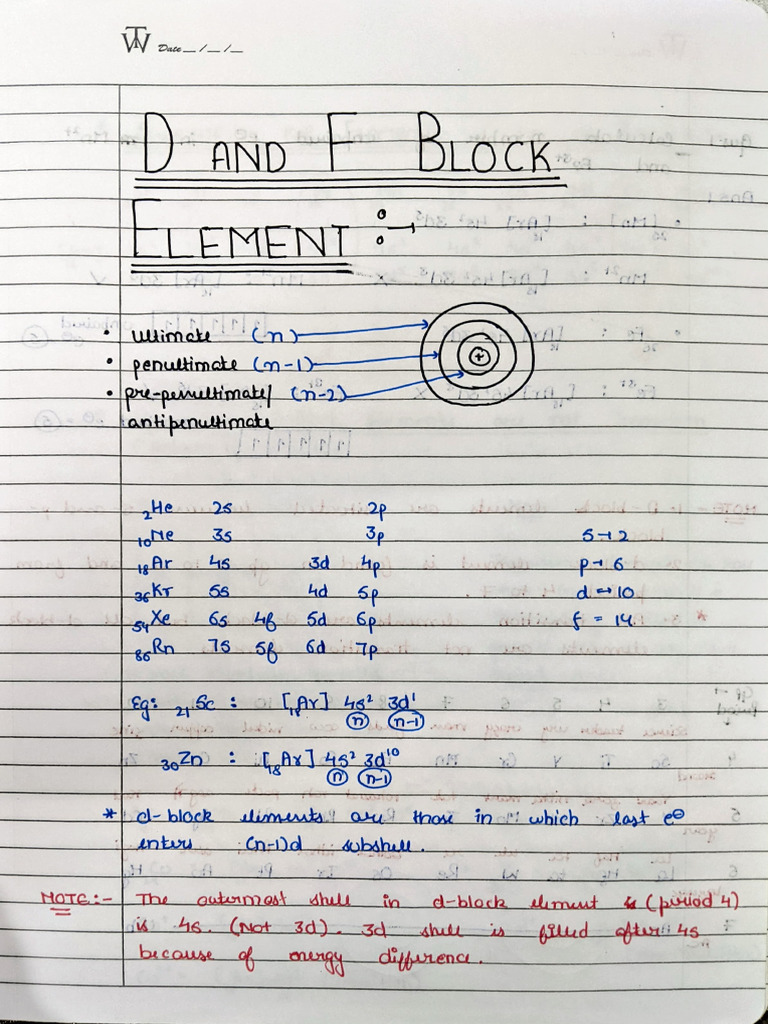 TW Date __/__/__
D AND F BLOCK
ELEMENT :→
• ultimate (n)
• penultimate (n-1)
• pre-penultimate/ (n-2)
antipenultimate
+
₂He 2s 2p
₁₀Ne 3s 3p S→2
₁₈Ar 4s 3d 4p p→6
₃₆Kr 5s 4d 5p d→10
₅₄Xe 6s 4f 5d 6p f = 14
₈₆Rn 7s 5f 6d 7p
Eg: ₂₁Sc : [₁₈Ar] 4s² 3d¹
(n) (n-1)
₃₀Zn : [₁₈Ar] 4s² 3d¹⁰
(n) (n-1)
* d-block elements are those in which last e⊖
enters (n-1)d subshell.
NOTE:- The outermost shell in d-block element (period 4)
is 4s. (Not 3d). 3d shell is filled after 4s
because of energy difference.